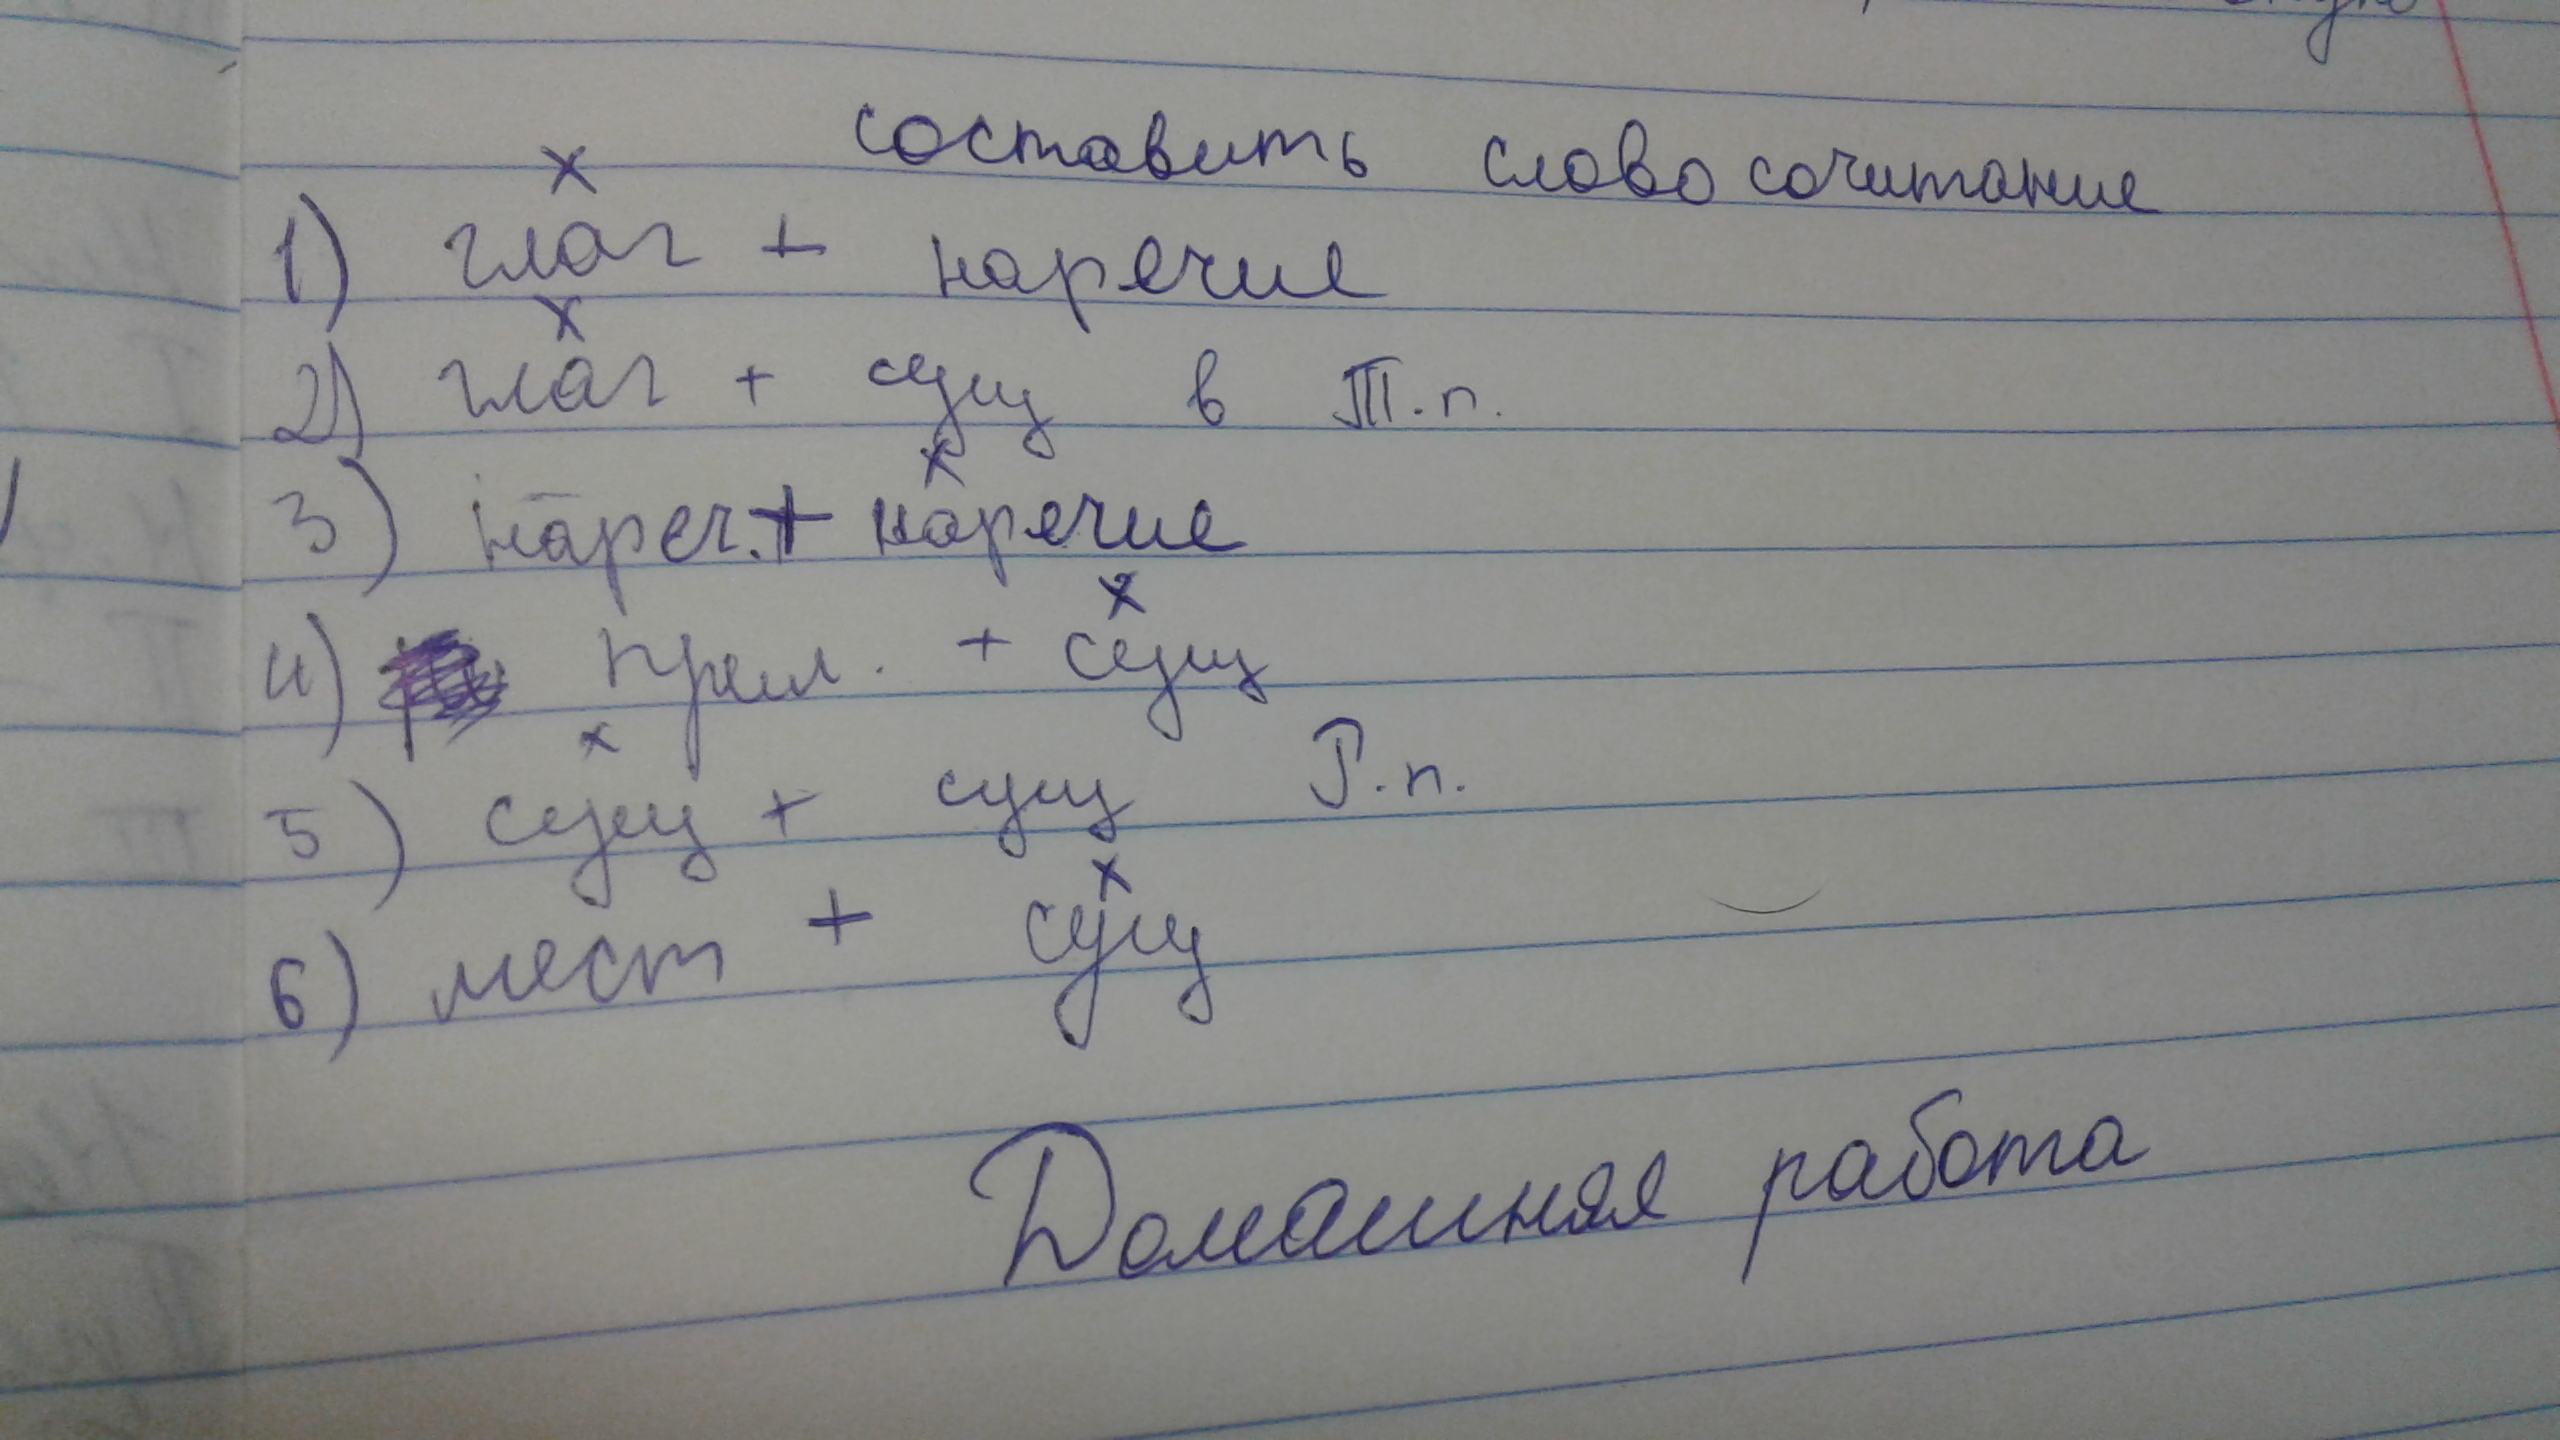 составить словосочетание
х
1) глаг + наречие
х
2) глаг + сущ в Т.п.
х
3) нареч. + наречие
х
4) прил. + сущ
х
5) сущ + сущ Р.п.
х
6) мест + сущ
Домашняя работа